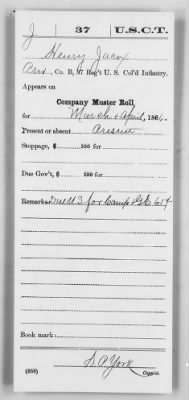 J 37 U.S.C.T.
Henry Jacox
Pvt., Co. B, 37 Reg't U. S. Col'd Infantry.
Appears on
Company Muster Roll
for March & April, 1866.
Present or absent Present
Stoppage, $ 100 for
Due Gov't, $ 100 for
Remarks: Due U S for Camp & G E 65¢
Book mark:
S. A. York
(358) Copyist.